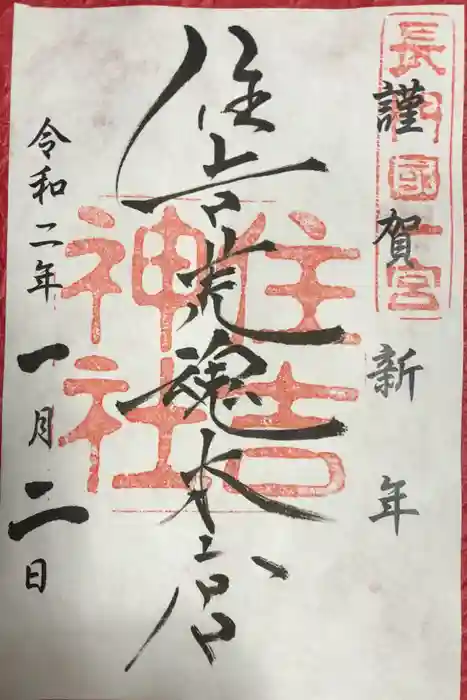 長門國一宮
謹賀新年
住吉荒魂本宮
住吉
神社
令和二年一月二日